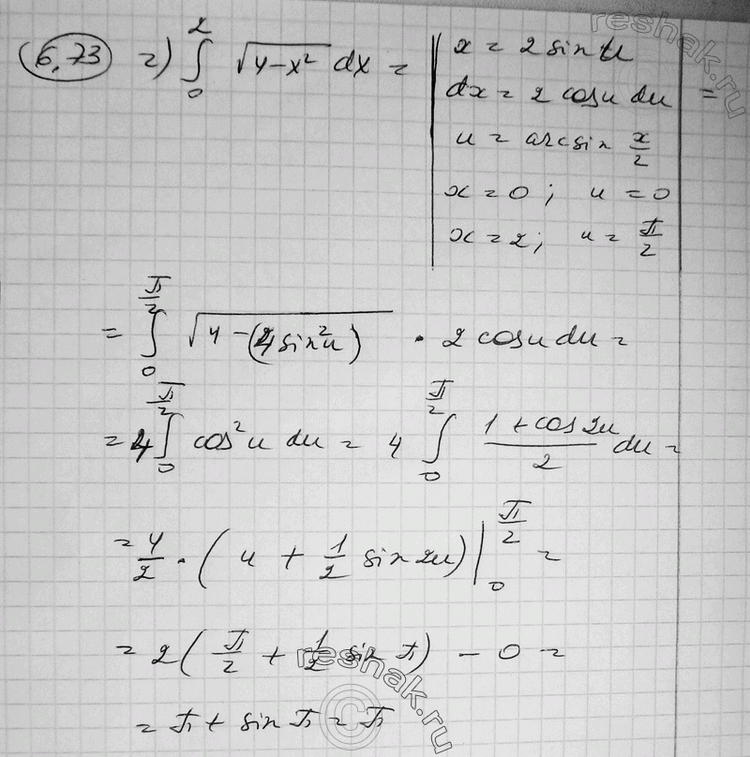 6.73 г) ∫₀² √(4-x²) dx = | x = 2 sin u
dx = 2 cos u du | =
u = arcsin x/2
x = 0; u = 0
x = 2; u = π/2
= ∫₀^(π/2) √(4-(4 sin² u)) · 2 cos u du =
= 4 ∫₀^(π/2) cos² u du = 4 ∫₀^(π/2) (1 + cos 2u)/2 du =
= 4/2 · (u + 1/2 sin 2u) |₀^(π/2) =
= 2(π/2 + 1/2 sin π) - 0 =
= π + sin π = π
reshak.ru
reshak.ru
©
reshak.ru